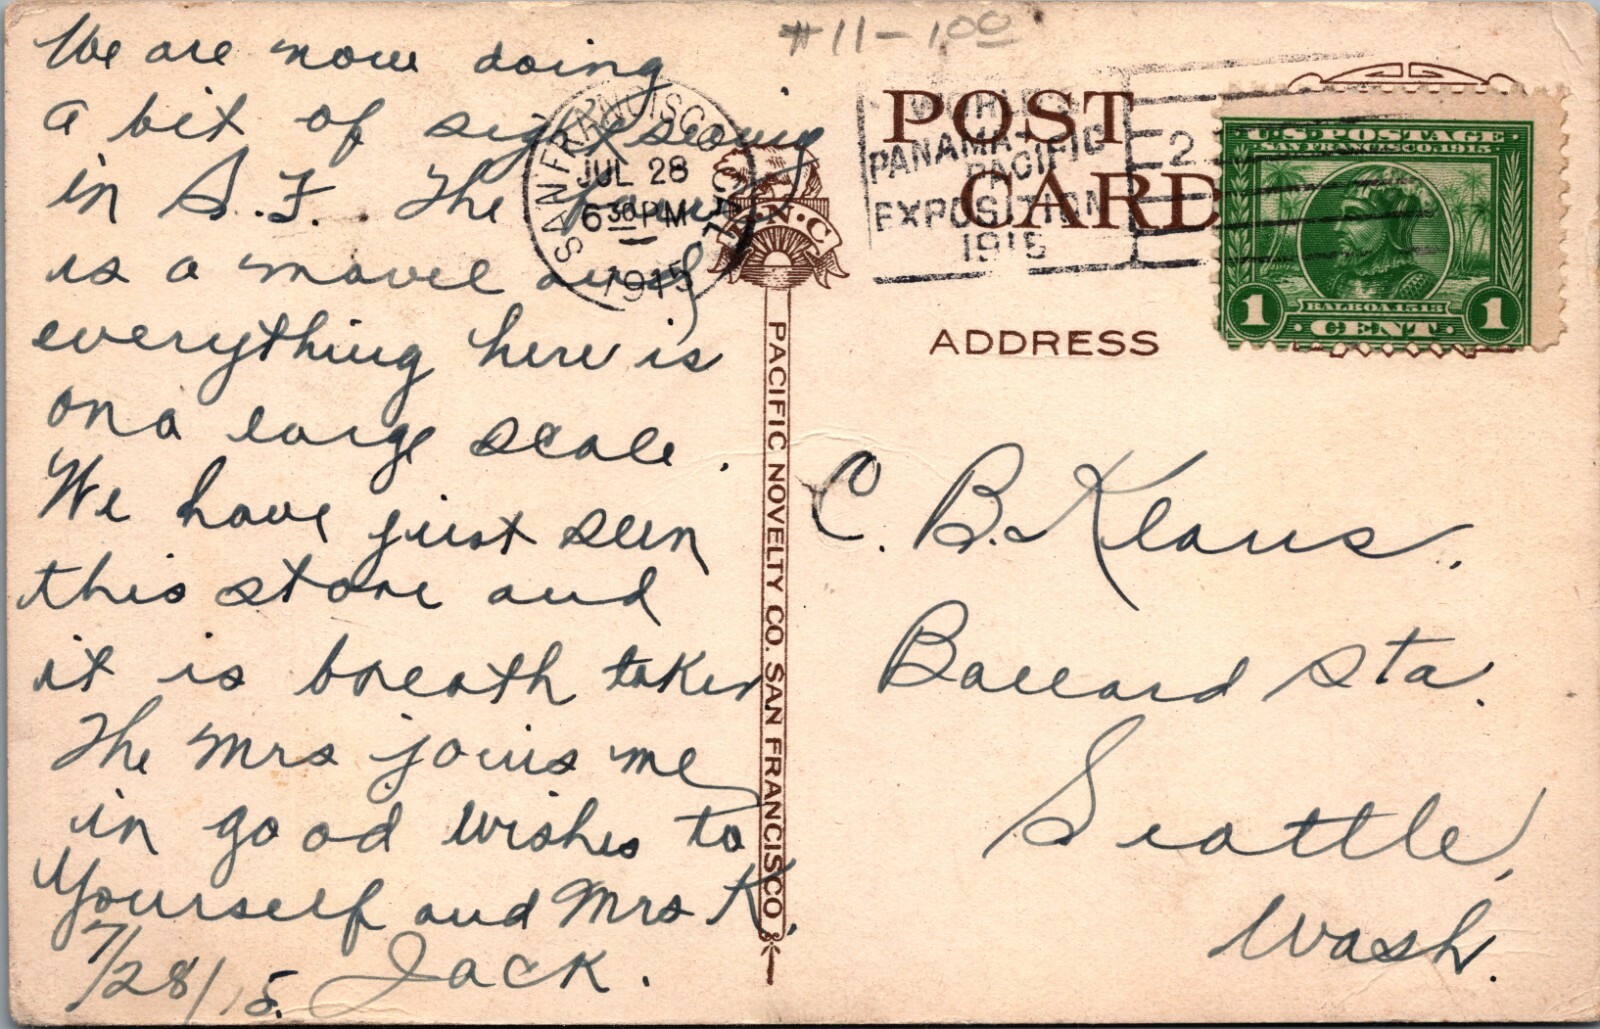 #11-1.00
We are now doing
a bit of sightseeing
in S.F. The
is a movel and
everything here is
on a large scale.
We have just seen
this store and
it is breath taken
The Mrs joins me
in good wishes to
Yourself and Mrs K.
7/28/15. Jack.
SAN FRANCISCO, CAL.
JUL 28
6 30 PM
1915
WORLD'S
PANAMA-PACIFIC
EXPOSITION
1915
2
POST
CARD
ADDRESS
U.S. POSTAGE
SAN FRANCISCO, 1915
BALBOA 1513
1 CENT 1
P.N.C.
PACIFIC NOVELTY CO. SAN FRANCISCO
C. B. Klaus.
Ballard Sta.
Seattle,
Wash.